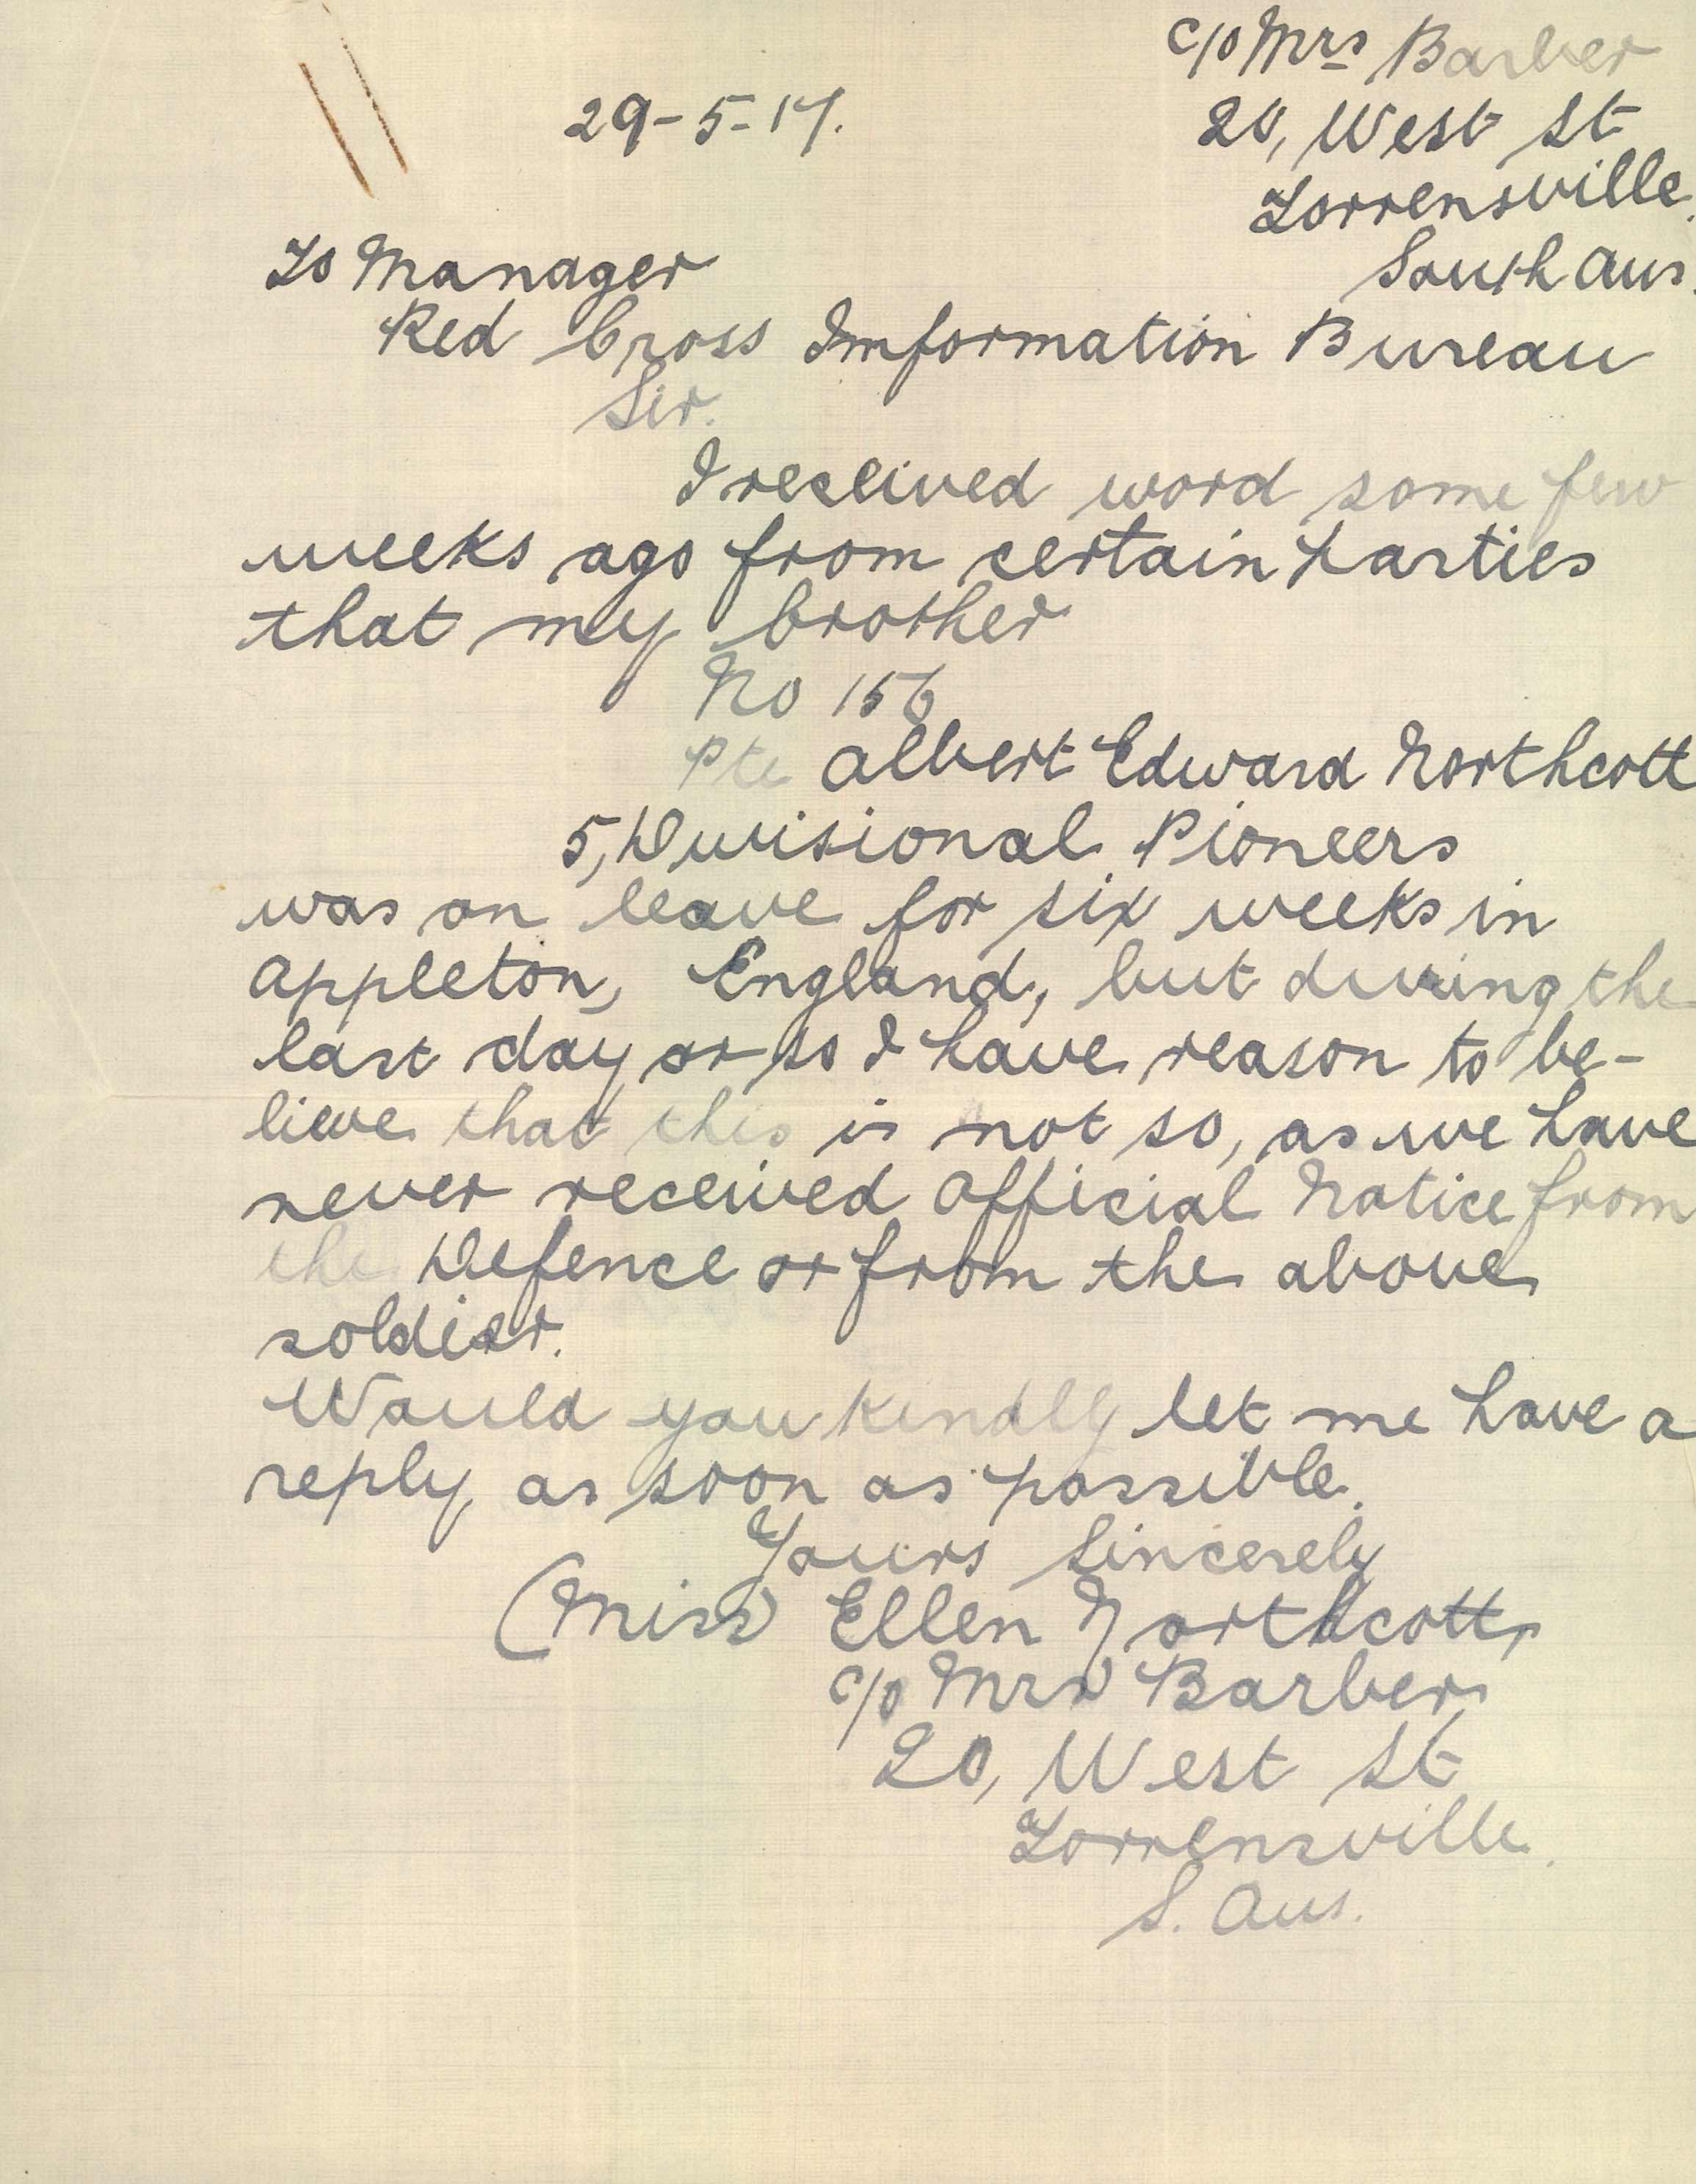 c/o Mrs Barber
29-5-17.
20, West St
Torrensville.
South Aus.
To Manager
Red Cross Imformation Bureau
Sir.
I received word some few
weeks ago from certain parties
that my brother
No 156
Pte Albert Edward Northcott
5, Divisional Pioneers
was on leave for six weeks in
Appleton, England, but during the
last day or so I have reason to be-
lieve that this is not so, as we have
never received Official Notice from
the Defence or from the above
soldier.
Would you kindly let me have a
reply as soon as possible.
Yours Sincerely
(Miss) Ellen Northcott,
c/o Mrs Barber
20, West St
Torrensville.
S. Aus.